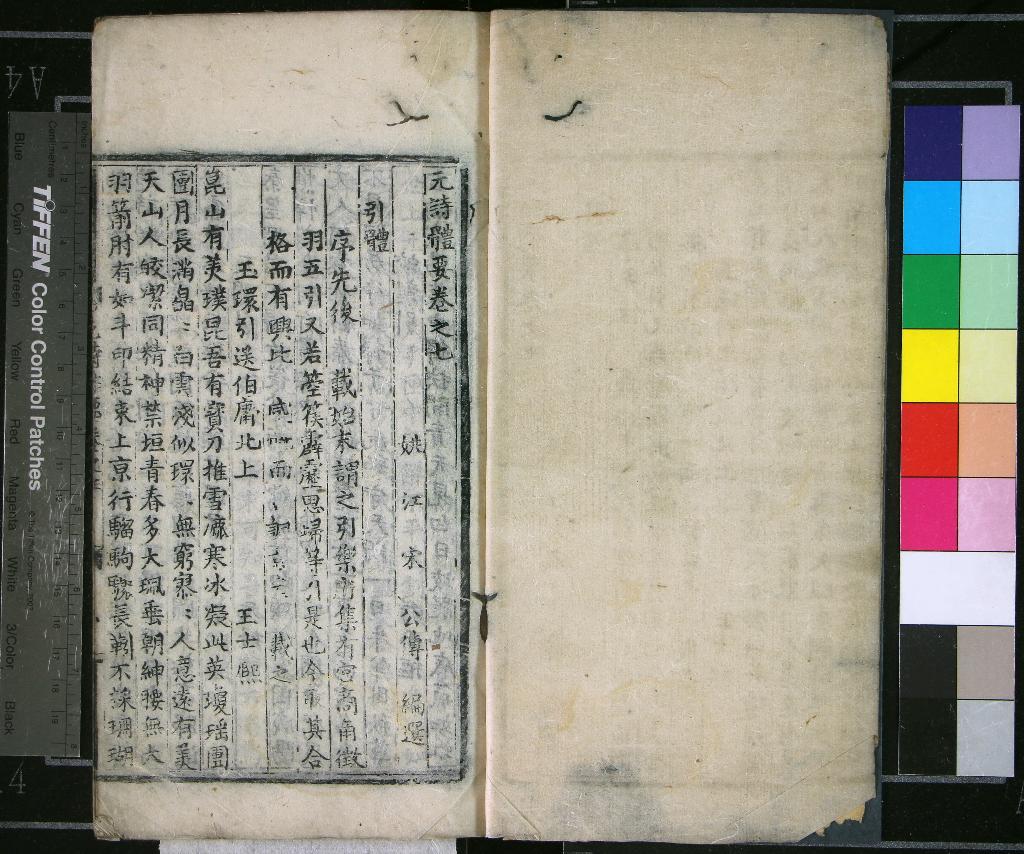 元詩體要卷之七
姚江宋公傳編選
引體
序先後載始末謂之引樂府集有宮商角徵
羽五引又若箜篌霹靂思歸等引是也今取其合
格而有興比 載之
玉環引送伯庸北上 王士熙
崑山有美璞昆吾有寶刀推雪廨寒冰凝此英瓊瑶團
團月長滿皛〻白雲淺似環〻無窮寥〻人意遠有美
天山人皎潔同精神禁垣青春多大珮垂朝紳腰無大
羽箭肘有如斗印結束上京行騮駒驟長靷不採珊瑚
TIFFEN Color Control Patches
Blue Cyan Green Yellow Red Magenta White 3/Color Black
Centimetres
A4